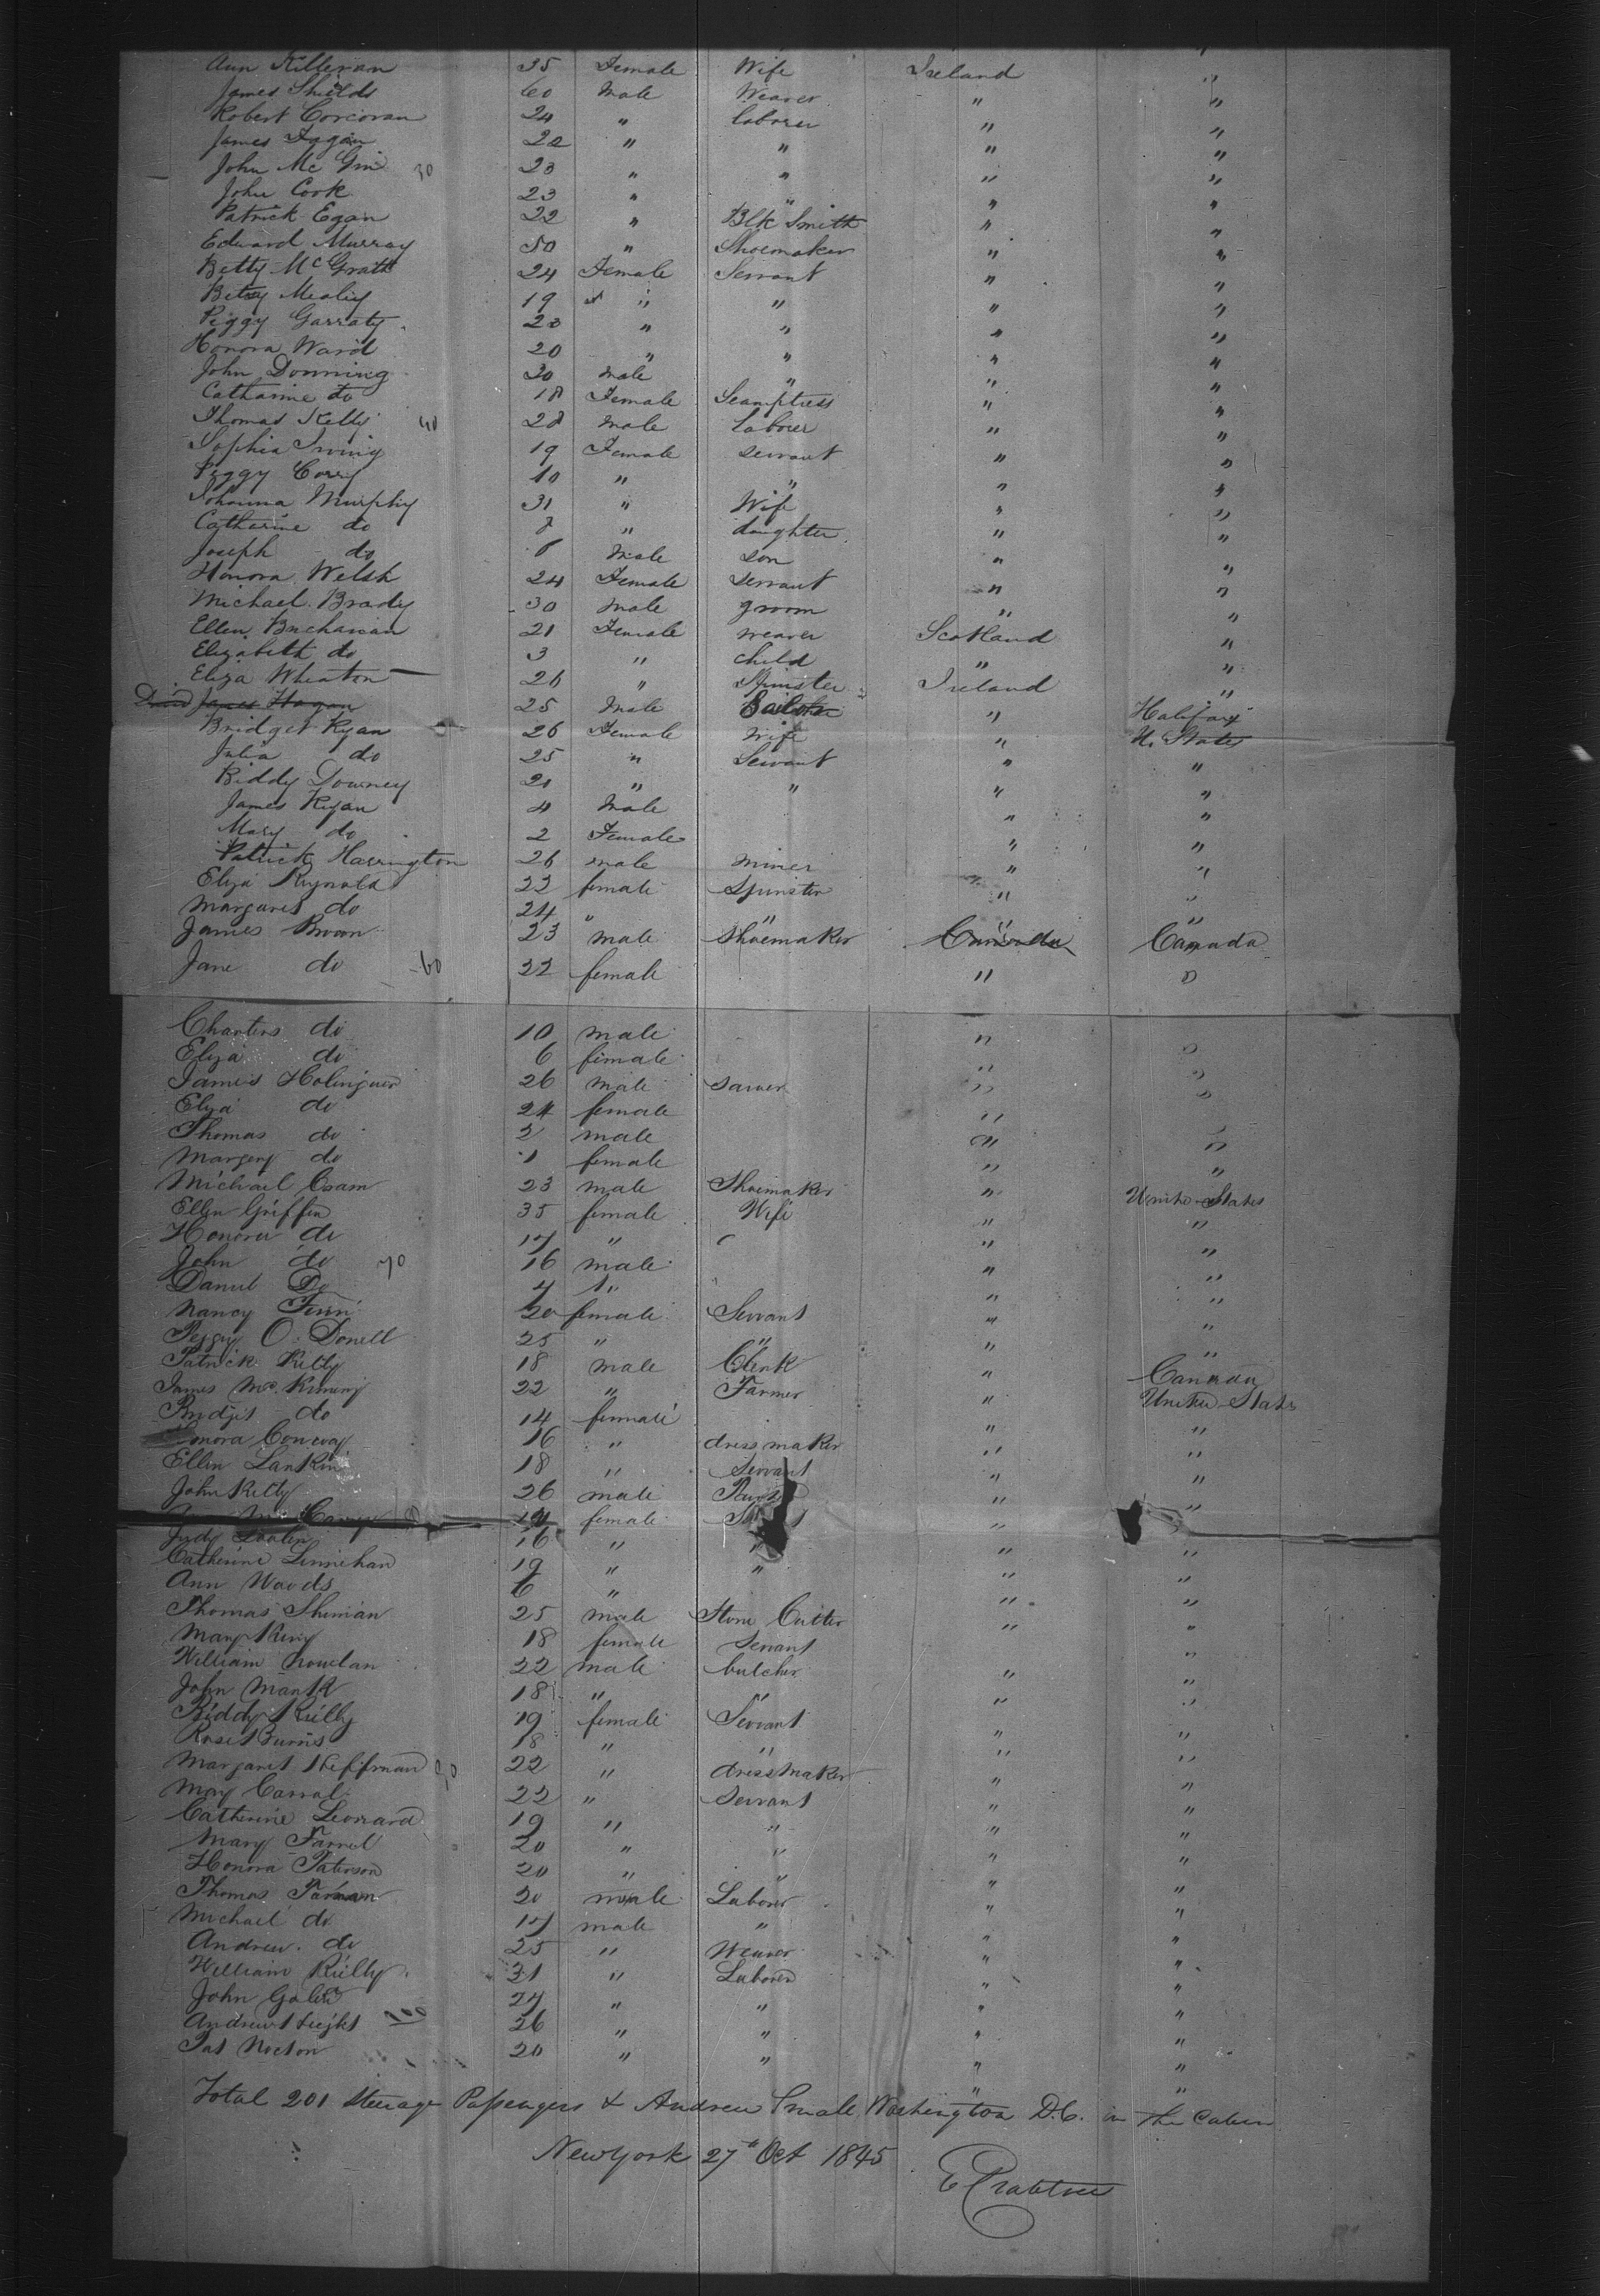 Ann Killeran 35 Female Wife Ireland "
James Shields 60 Male Weaver " "
Robert Corcoran 24 " laborer " "
James Fagan 22 " " " "
John Mc Gin 30 23 " " " "
John Cook 23 " " " "
Patrick Egan 22 " Blk Smith " "
Edward Murray 50 " Shoemaker " "
Betty McGrath 24 Female Servant " "
Betsy Mealiy 19 " " " "
Peggy Garraty 23 " " " "
Honora Ward 20 " " " "
John Donning 30 male " " "
Catharine do 18 Female Seamptress " "
Thomas Kelly 40 28 male Laborer " "
Sophia Irving 19 Female servant " "
Peggy Corry 10 " " " "
Johanna Murphy 31 " Wife " "
Catharine do " daughter " "
Joseph do Male son " "
Honora Welsh 24 Female Servant " "
Michael Brady 30 Male groom " "
Ellen Buchanan 21 Female weaver Scotland "
Elizabeth do 3 " child " "
Eliza Wheaton 26 " Spinster Ireland "
David James Hagan 25 Male " Halifax
Bridget Ryan 26 Female Wife " U. States
Julia do 25 " Servant " "
Biddy Downey 21 " " " "
James Ryan 4 Male " "
Mary do 2 Female " "
Patrick Harrington 26 male miner " "
Eliza Rynold 22 female Spinster " "
Margaret do 24 " " " "
James Brown 23 male Shoemaker Canada Canada
Jane do 60 22 female " "
Charters do 10 male " "
Eliza do 6 female " "
James Holinguer 26 male sawer " "
Eliza do 24 female " "
Thomas do 2 male " "
Margery do 1 female " "
Michael Cram 23 male Shoemaker " United States
Ellen Griffen 35 female Wife " "
Honora do 17 " " "
John do 70 16 male " "
Daniel Do 4 " " "
Nancy 20 female Servant " "
Peggy O. Donell 25 " " " "
Patrick Kelly 18 male Clerk " Canada
James Mc 22 " Farmer " United States
Bridjit do 14 female " "
Conway 16 " dressmaker " "
Ellen Lankin 18 " Servant " "
John Kelly 26 male " "
female " "
Judy 16 " " " "
Catherine Linnehan 19 " " " "
Ann Woods 6 " " "
Thomas Shinian 25 male Stone Cutter " "
Mary King 18 female Servant " "
William Nowlan 22 male butcher " "
John Mank 18 " " " "
Biddy Reilly 19 female Servant " "
Rose Burns 18 " " " "
Margaret Heffman 90 22 " dressmaker " "
Mary Carrol 22 " Servant " "
Catherine Leonard 19 " " " "
Mary Farrel 20 " " " "
Honora Paterson 20 " " " "
Thomas Farnam 20 male Laborer " "
Michael do 17 male " " "
Andrew do 25 " Weaver " "
William Reilly 31 " Laborer " "
John 24 " " " "
Andrew 100 26 " " " "
Pat Nocton 20 " " " "
Total 201 Steerage Passengers & Andrew Smale Washington D.C. in the Cabin
New York 27th Oct 1845
E Crabtree